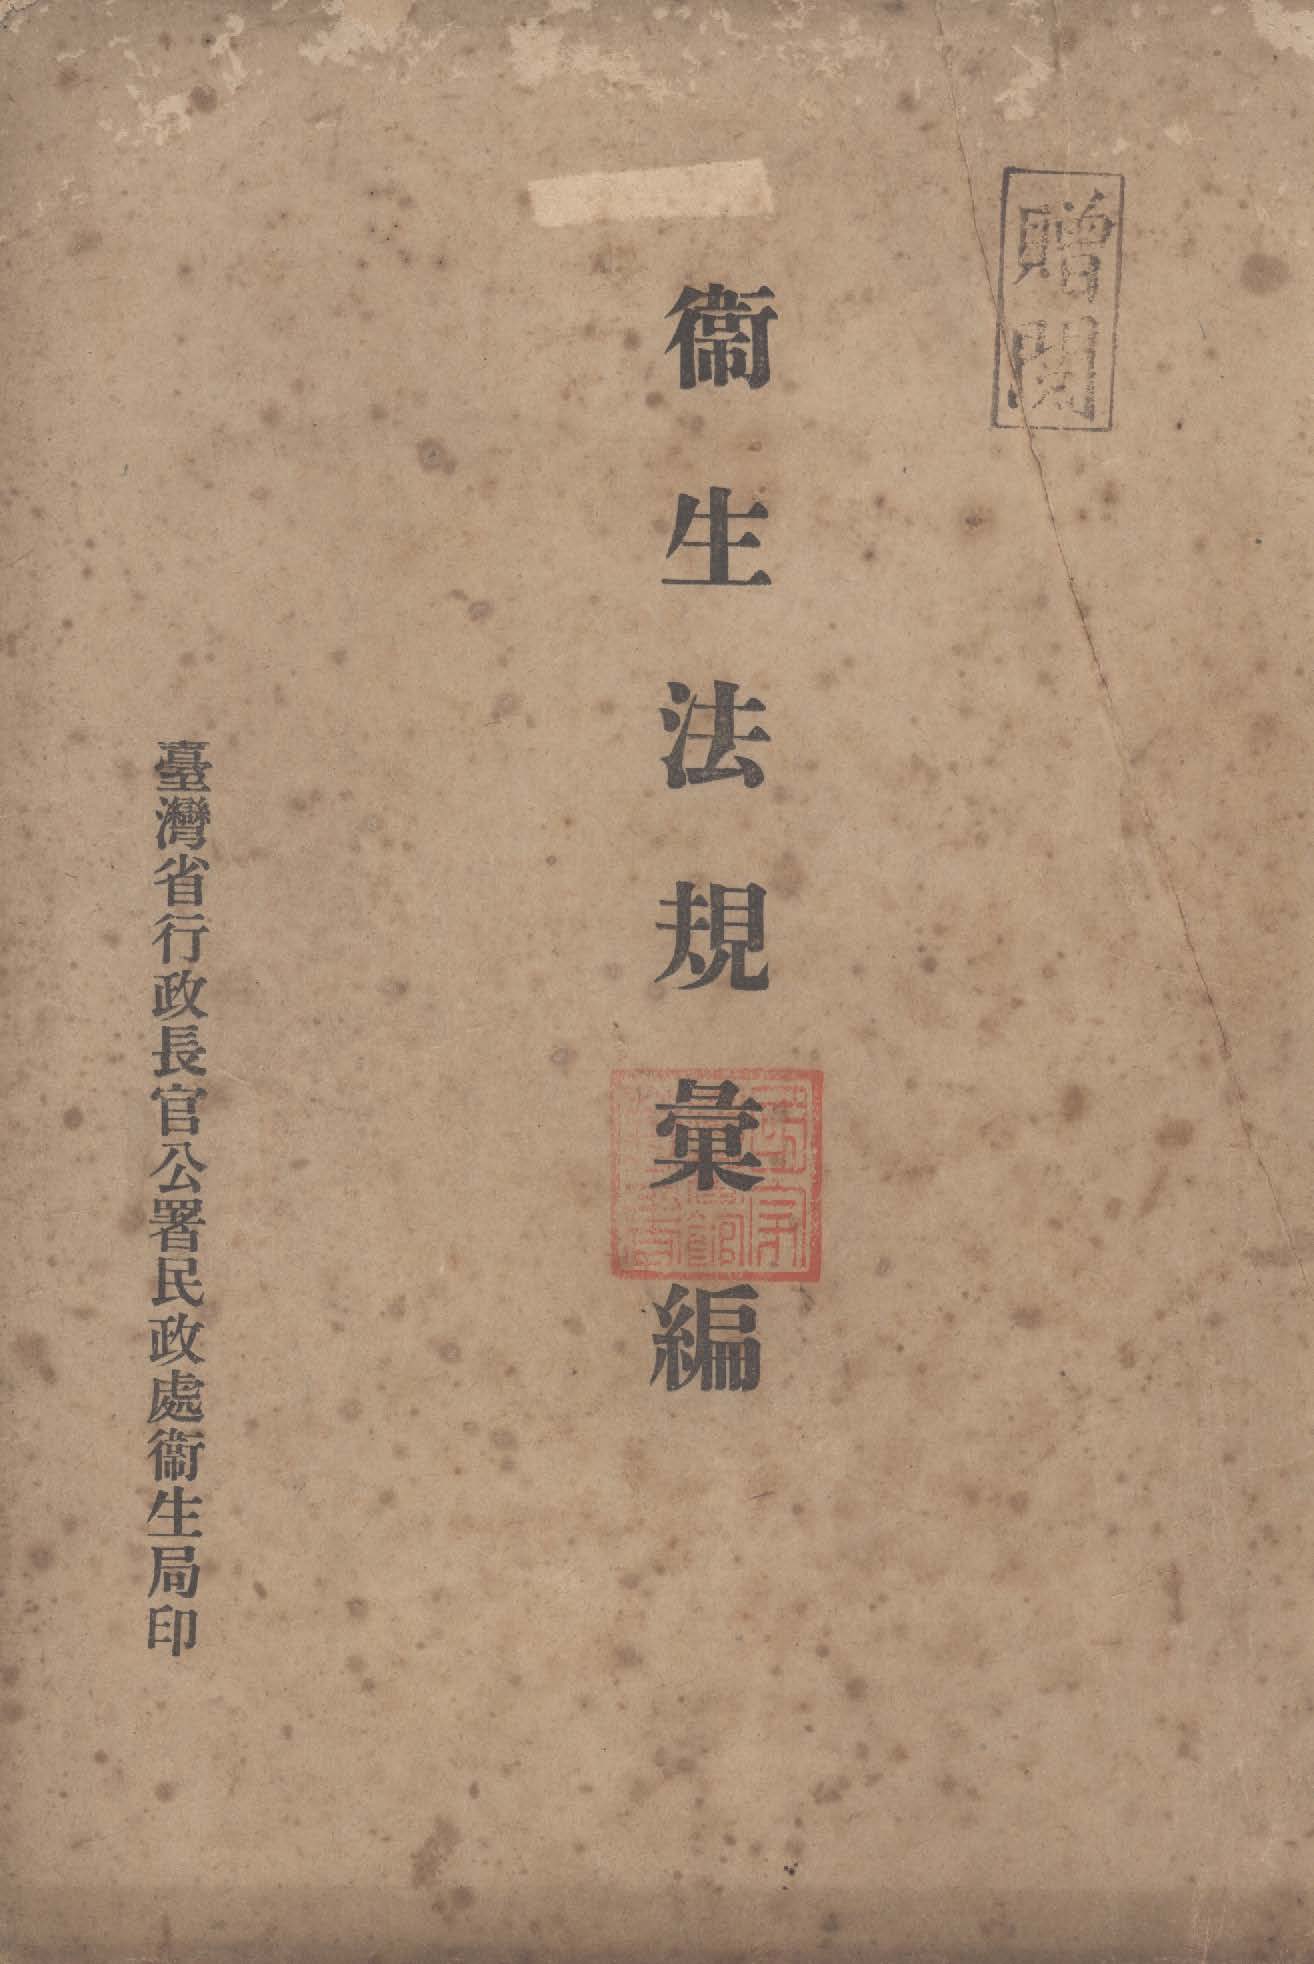 贈閱
衞生法規彙編
臺灣省行政長官公署民政處衞生局印